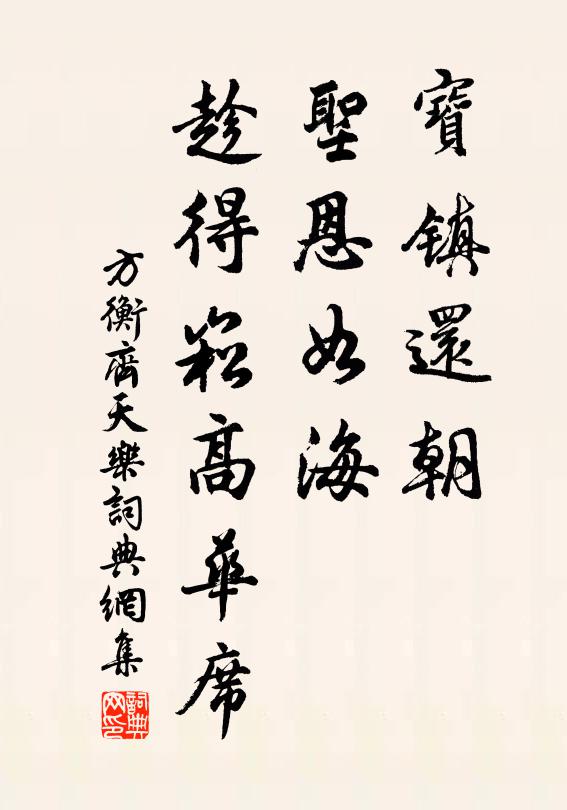 寶鎮還朝
聖恩如海
趁得崧高華席
方衡齊天樂詞典網集
詞典網印